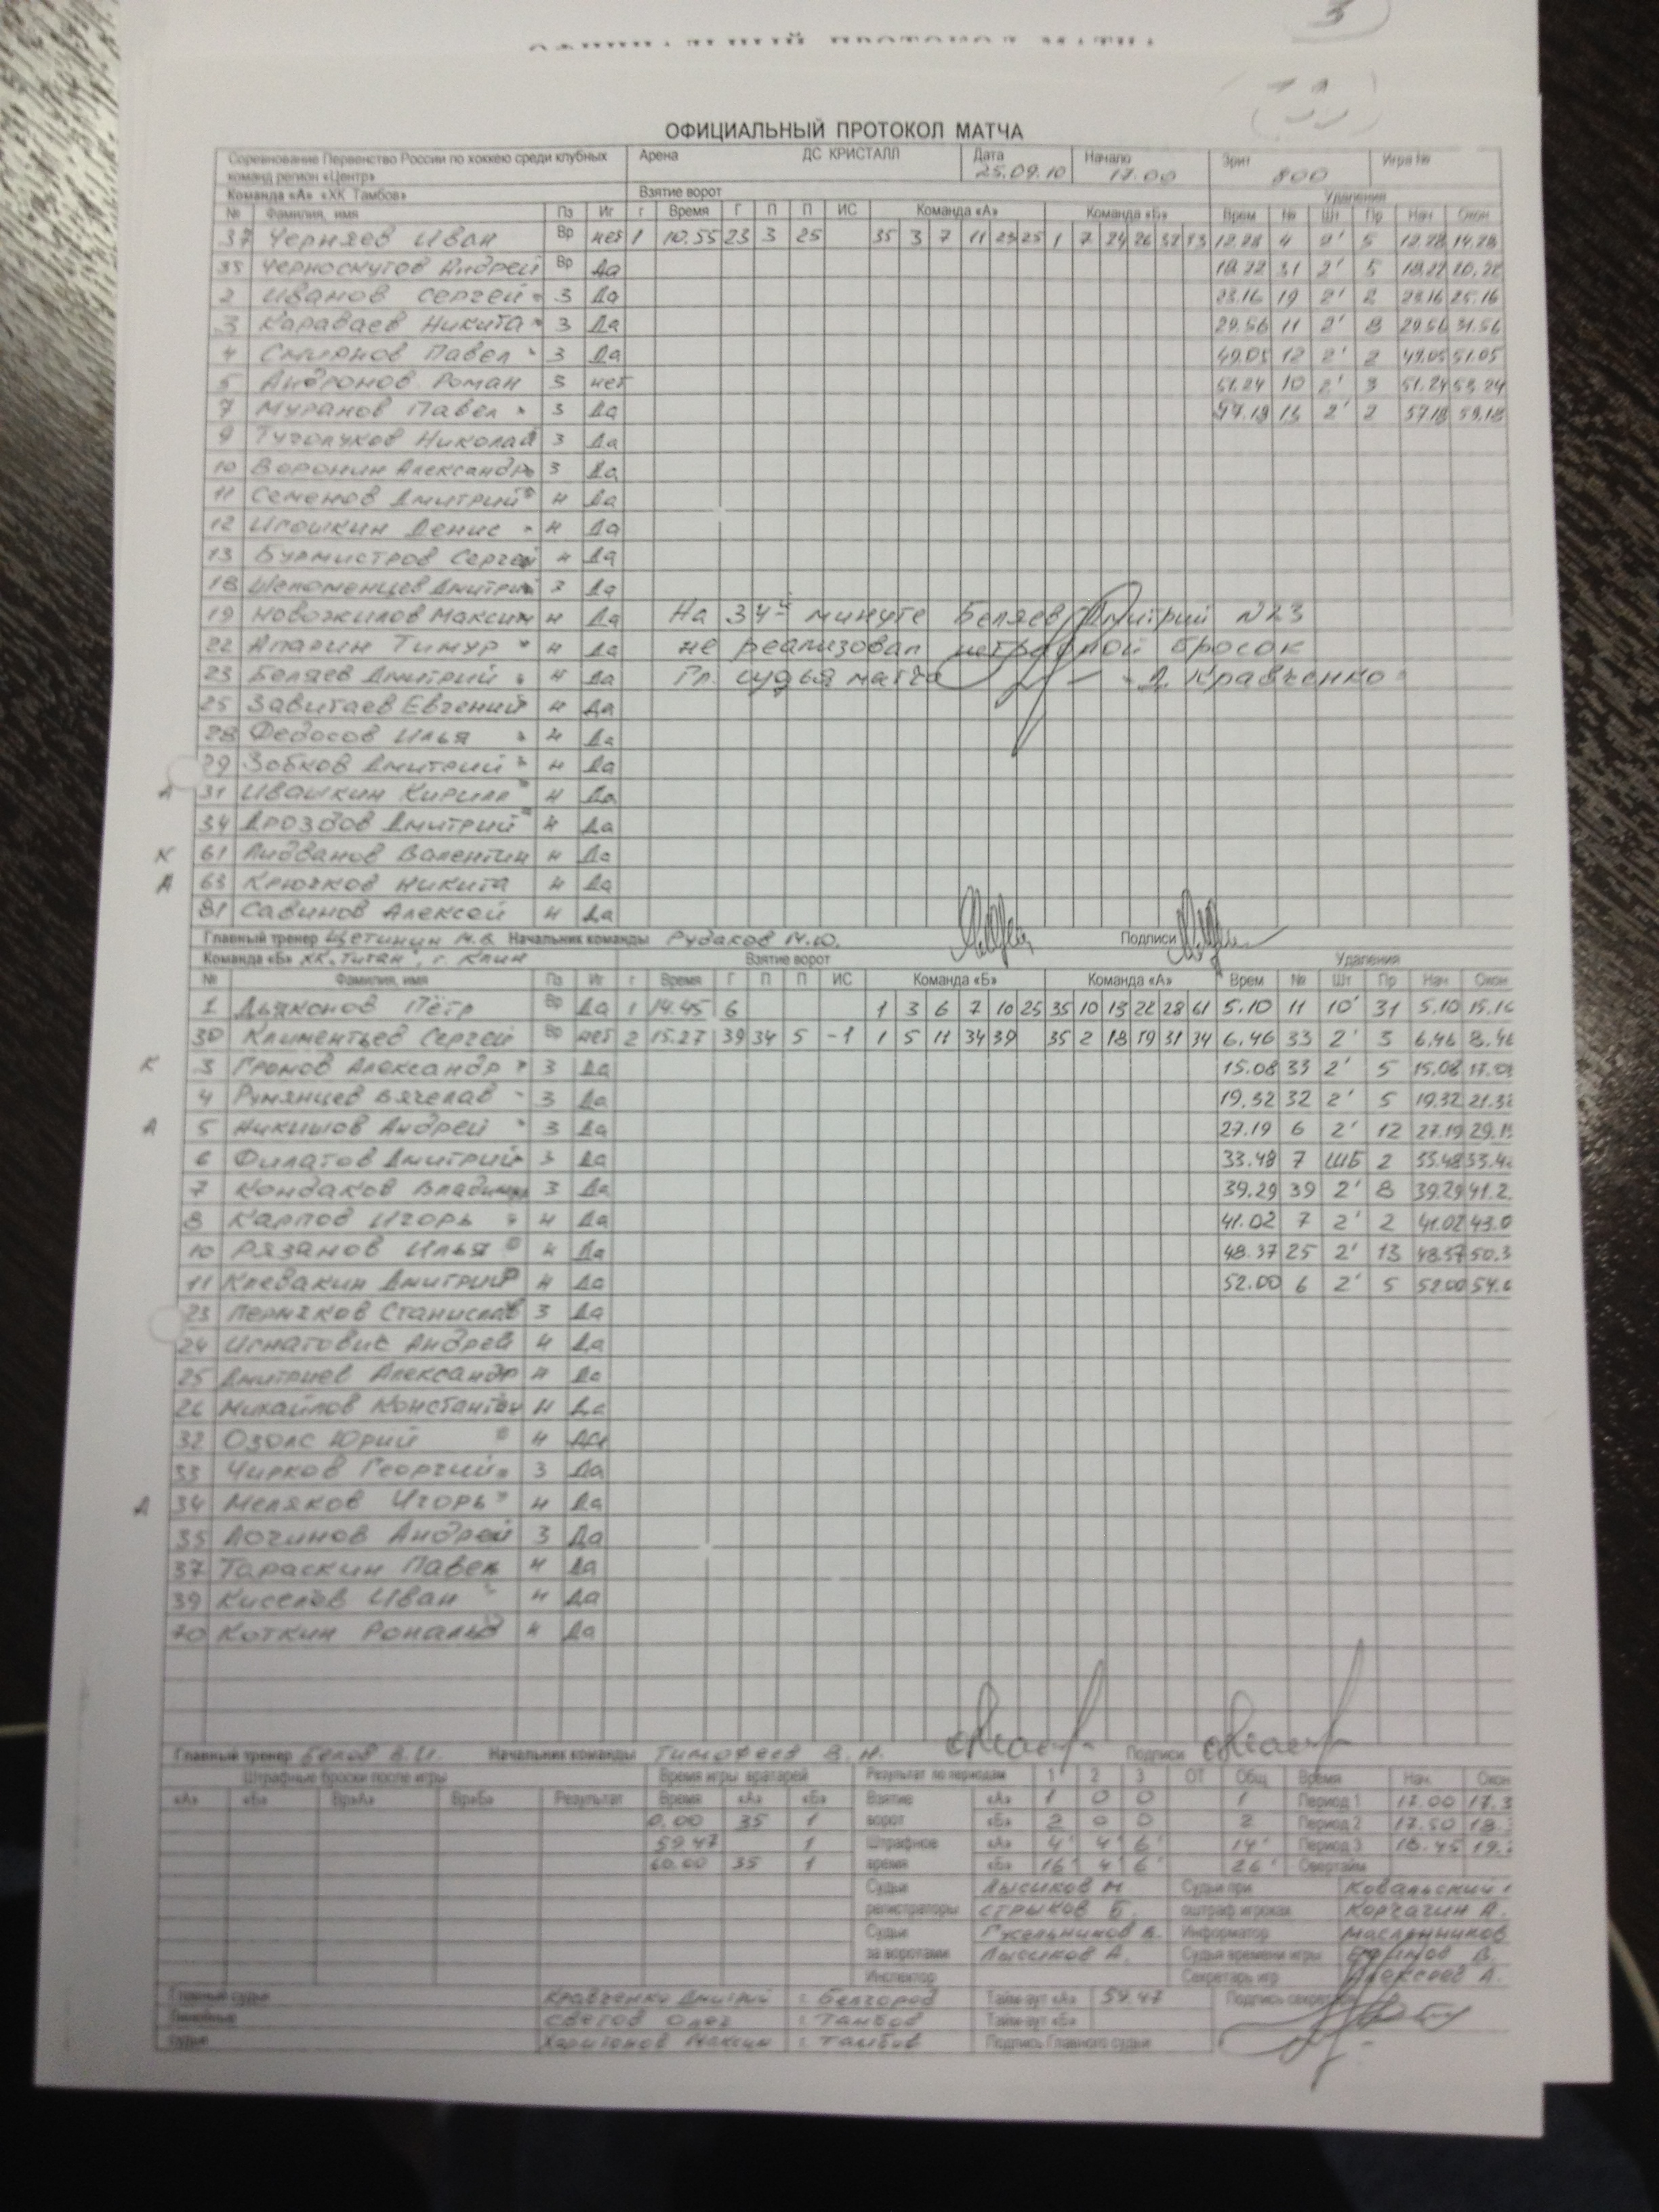 ОФИЦИАЛЬНЫЙ ПРОТОКОЛ МАТЧА
Соревнование Первенство России по хоккею среди клубных команд регион «Центр» Арена ДС КРИСТАЛЛ Дата 25.09.10 Начало 17.00 Зрит 800 Игра №
Команда «А» «ХК Тамбов» Взятие ворот Удаления
№ Фамилия, имя Пз Иг г Время Г П П ИС Команда «А» Команда «Б» Врем № Шт Пр Нач Окон
37 Черняев Иван Вр нет 1 10.55 23 3 25 35 3 7 11 23 25 1 7 24 26 32 33 12.28 4 2' 5 12.28 14.28
35 Черноскутов Андрей Вр Да 18.22 31 2' 5 18.22 20.22
2 Иванов Сергей 3 Да 23.16 19 2' 2 23.16 25.16
3 Караваев Никита 3 Да 29.56 11 2' 8 29.56 31.56
4 Смирнов Павел 3 Да 49.05 12 2' 2 49.05 51.05
5 Андронов Роман 3 нет 51.24 10 2' 3 51.24 53.24
7 Муранов Павел 3 Да 57.18 13 2' 2 57.18 59.18
9 Туголуков Николай 3 Да
10 Воронин Александр 3 Да
11 Семенов Дмитрий н Да
12 Игошкин Денис н Да
13 Бурмистров Сергей н Да
18 Шеломенцев Дмитрий 3 Да
19 Новожилов Максим н Да На 34й минуте Беляев Дмитрий №23
22 Апарин Тимур н Да не реализовал штрафной бросок
23 Беляев Дмитрий н Да Гл. судья матча Д. Кравченко
25 Завитаев Евгений н Да
28 Федосов Илья н Да
29 Зобков Дмитрий н Да
А 31 Ивашкин Кирилл н Да
34 Дроздов Дмитрий н Да
К 61 Лидванов Валентин н Да
А 63 Крючков Никита н Да
81 Савинов Алексей н Да
Главный тренер Щетинин М.В. Начальник команды Рудаков М.Ю. Подписи
Команда «Б» ХК "Титан", г. Клин Взятие ворот Удаления
№ Фамилия, имя Пз Иг г Время Г П П ИС Команда «Б» Команда «А» Врем № Шт Пр Нач Окон
1 Дьяконов Пётр Вр Да 1 14.45 6 1 3 6 7 10 25 35 10 13 22 28 61 5.10 11 10' 31 5.10 15.10
30 Климентьев Сергей Вр нет 2 15.27 39 34 5 -1 1 5 11 34 39 35 2 18 19 31 34 6.46 33 2' 3 6.46 8.46
К 3 Громов Александр 3 Да 15.08 33 2' 5 15.08 17.08
4 Румянцев Вячеслав 3 Да 19.32 32 2' 5 19.32 21.32
А 5 Никишов Андрей 3 Да 27.19 6 2' 12 27.19 29.19
6 Филатов Дмитрий 3 Да 33.48 7 ШБ 2 33.48 33.48
7 Кондаков Владимир 3 Да 39.29 39 2' 8 39.29 41.2
8 Карпов Игорь н Да 41.02 7 2' 2 41.02 43.0
10 Рязанов Илья н Да 48.37 25 2' 13 48.37 50.3
11 Клевакин Дмитрий н Да 52.00 6 2' 5 52.00 54.0
23 Пермяков Станислав 3 Да
24 Игнатович Андрей н Да
25 Дмитриев Александр н Да
26 Михайлов Константин н Да
32 Озолс Юрий н Да
33 Чирков Георгий 3 Да
А 34 Меляков Игорь н Да
35 Логинов Андрей 3 Да
37 Тараскин Павел н Да
39 Киселёв Иван н Да
70 Коткин Рональд н Да
Главный тренер Белов В.И. Начальник команды Тимофеев В.Н. Подписи
Штрафные броски после игры Время игры вратарей Результат по периодам 1 2 3 ОТ Общ Время Нач. Окон
«А» «Б» Вр«А» Вр«Б» Результат Время «А» «Б» Взятие «А» 1 0 0 1 Период 1 17.00 17.3
0.00 35 1 ворот «Б» 2 0 0 2 Период 2 17.50 18.
59.47 1 Штрафное «А» 4' 4' 6' 14' Период 3 18.45 19.
60.00 35 1 время «Б» 16' 4' 6' 26' Овертайм
Судьи Лысиков М Судьи при Ковальский
регистраторы Стрыков Б. оштраф. игроках Корчагин А.
Судьи Гусельников В. Информатор Маслянников
за воротами Лысиков А. Судья времени игры Ефимов В.
Инспектор Секретарь игр Алексеев А.
Главный судья Кравченко Дмитрий г. Белгород Тайм-аут «А» 59.47 Подпись секретаря
Линейные Светов Олег г. Тамбов Тайм-аут «Б»
судьи Харитонов Максим г. Тамбов Подпись Главного судьи